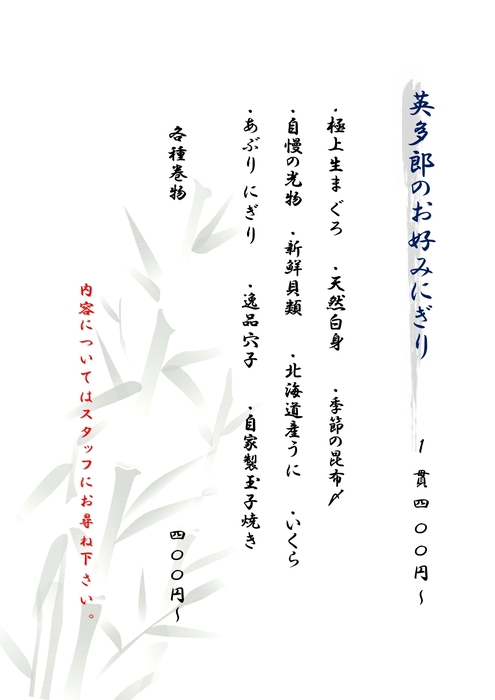 英多郎のお好みにぎり　1貫四〇〇円〜
・極上生まぐろ　・天然白身　・季節の昆布〆
・自慢の光物　・新鮮貝類　・北海道産うに　・いくら
・あぶりにぎり　・逸品穴子　・自家製玉子焼き
各種巻物　四〇〇円〜
内容についてはスタッフにお尋ね下さい。